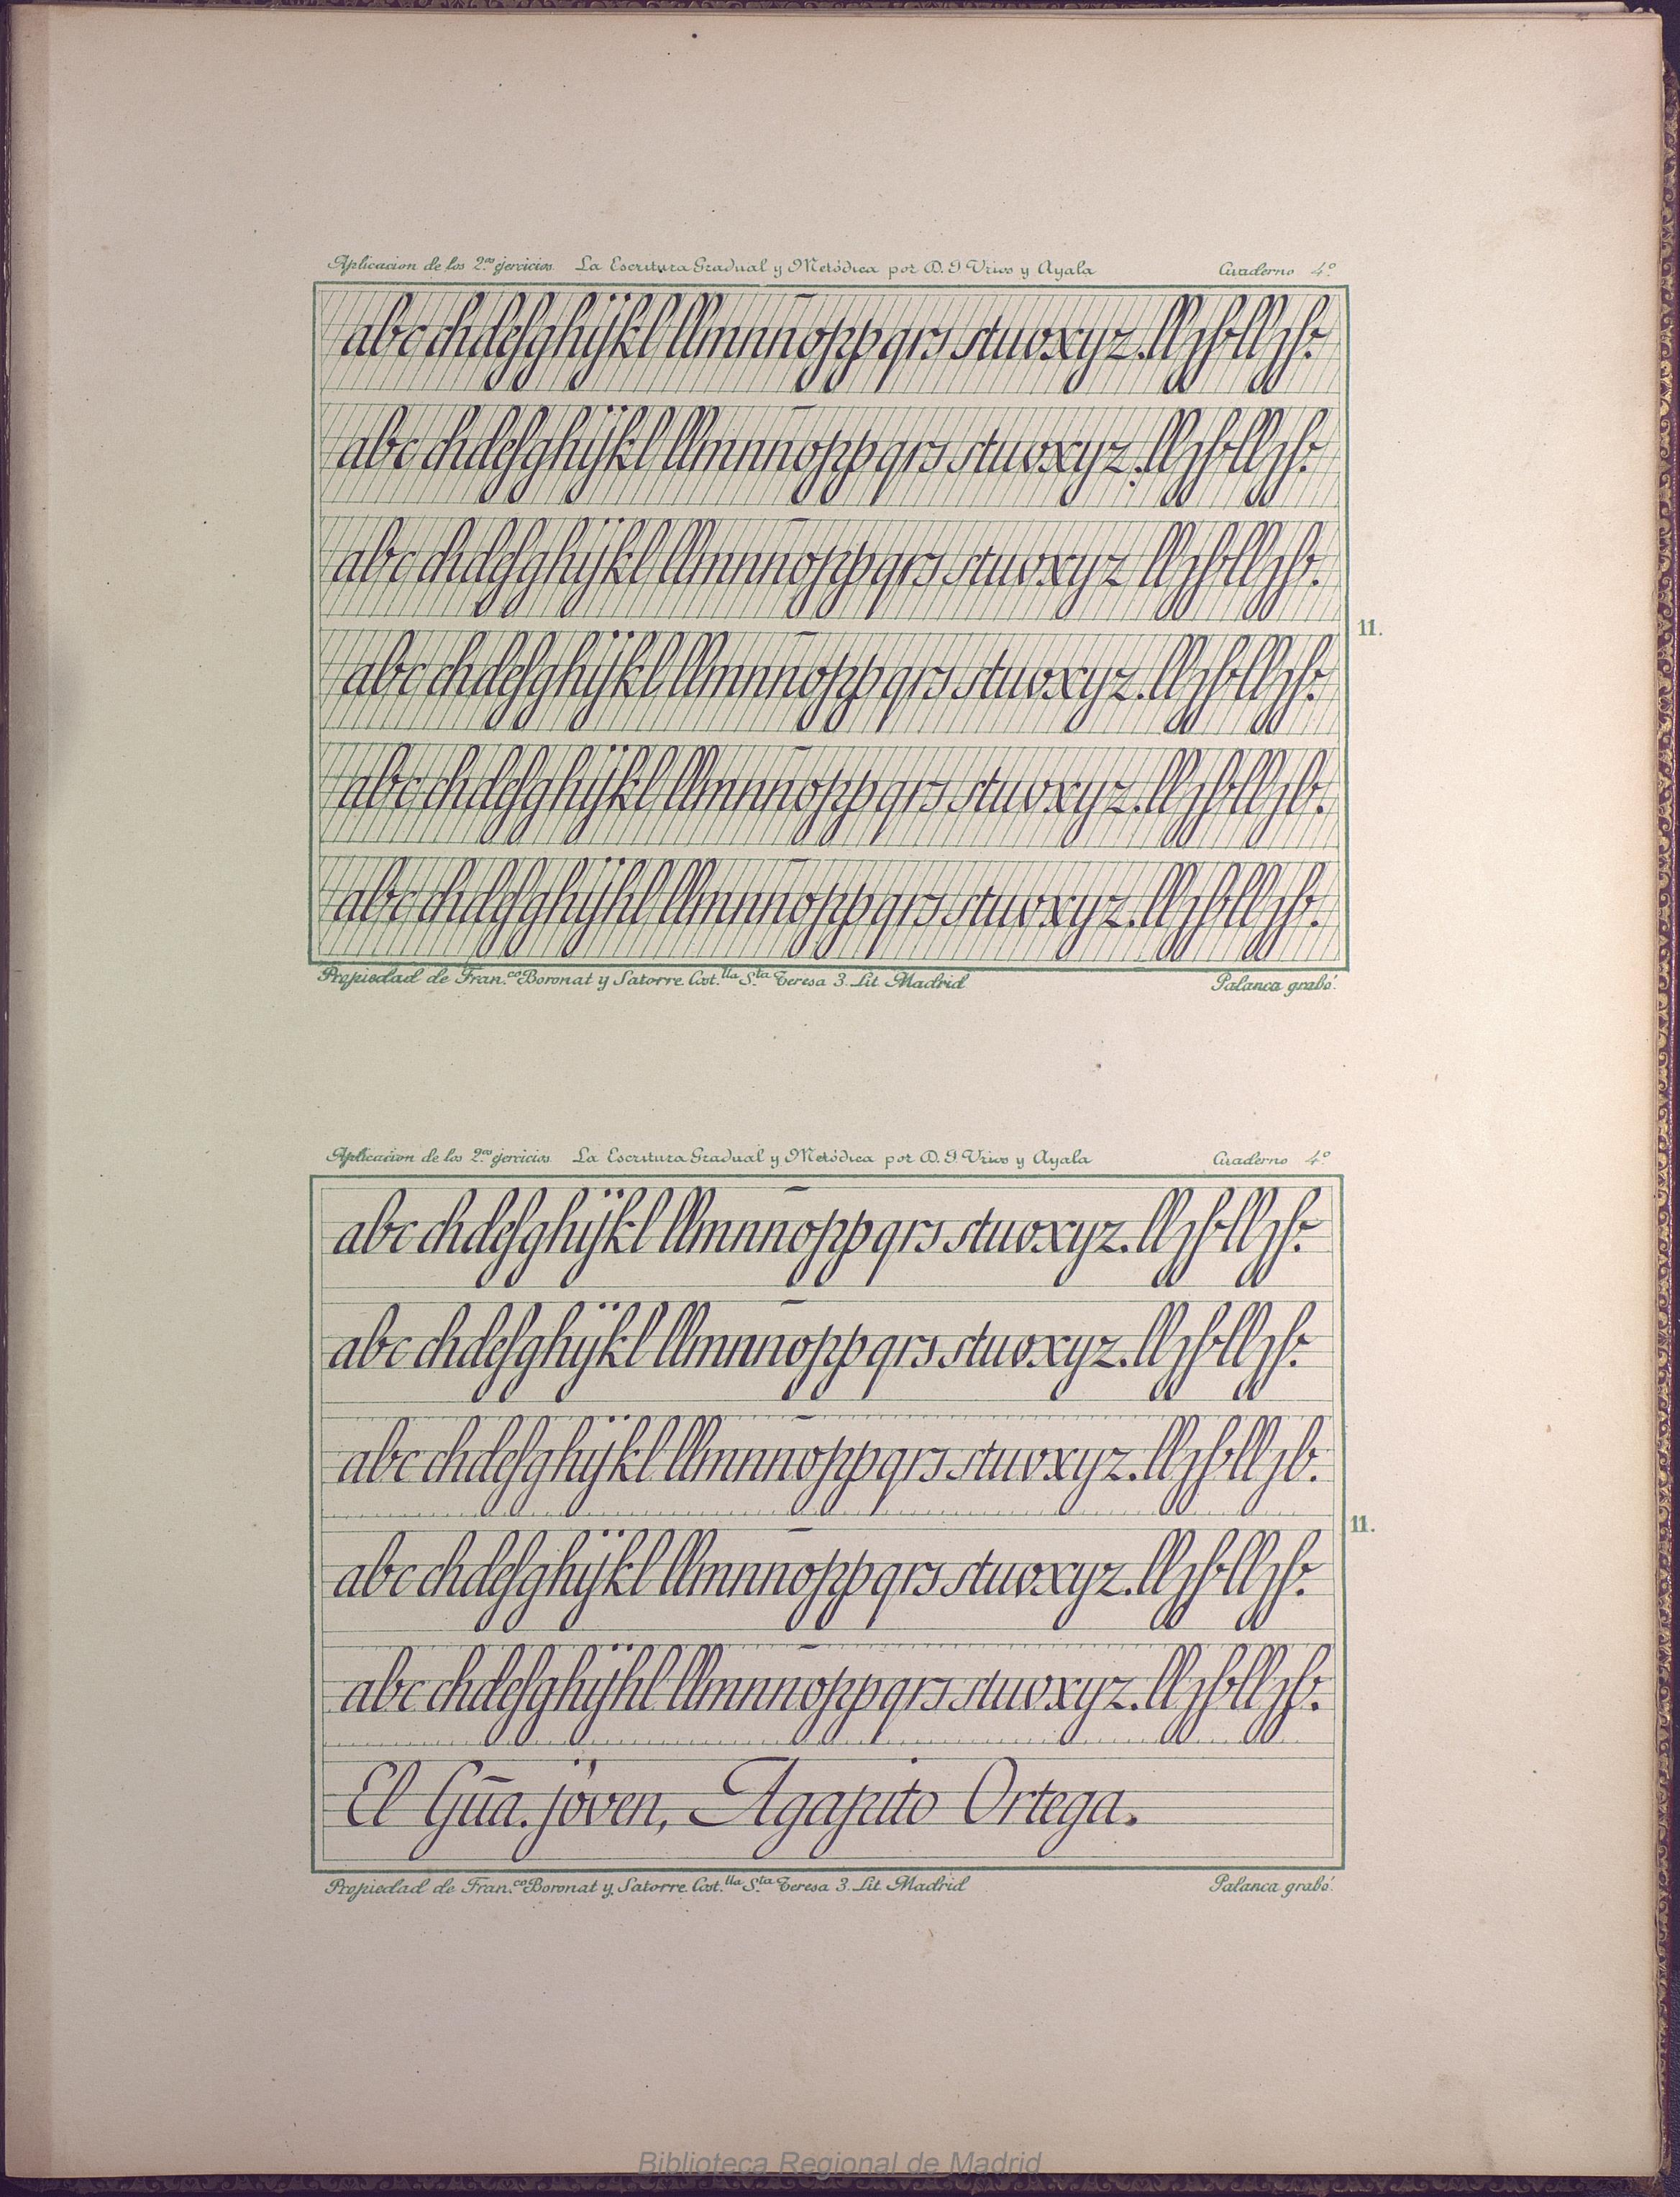 Aplicacion de los 2.os ejercicios. La Escritura Gradual y Metódica por D. I. Vrios y Ayala Cuaderno 4.º
abc ch defghijkl ll mnñopp qrs stuvxyz. ll
abc ch defghijkl ll mnñopp qrs stuvxyz. ll
abc ch defghijkl ll mnñopp qrs stuvxyz ll
abc ch defghijkl ll mnñopp qrs stuvxyz. ll
abc ch defghijkl ll mnñopp qrs stuvxyz. ll
abc ch defghijhl ll mnñopp qrs stuvxyz. ll
11.
Propiedad de Fran.co Boronat y Satorre. Cost.lla S.ta Teresa 3. Lit. Madrid Palanca grabó.
Aplicacion de los 2.os ejercicios. La Escritura Gradual y Metódica por D. I. Vrios y Ayala Cuaderno 4.º
abc ch defghijkl ll mnñopp qrs stuvxyz. ll
abc ch defghijkl ll mnñopp qrs stuvxyz. ll
abc ch defghijkl ll mnñopp qrs stuvxyz. ll
abc ch defghijkl ll mnñopp qrs stuvxyz. ll
abc ch defghijhl ll mnñopp qrs stuvxyz. ll
El Gūa. jóven, Agapito Ortega.
11.
Propiedad de Fran.co Boronat y Satorre. Cost.lla S.ta Teresa 3. Lit. Madrid Palanca grabó.
Biblioteca Regional de Madrid